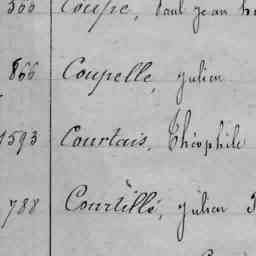 Coupé, Paul Jean
866 Coupelle, Julien
1593 Courtais, Théophile
788 Courtillé, Julien